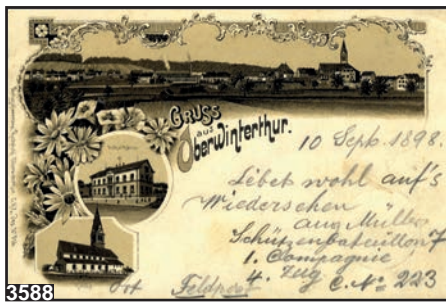 GRUSS
aus
Oberwinterthur.
10 Sept. 1898.
Lebet wohl auf's
Wiedersehen
Müller
Schützenbataillon 7
1. Compagnie
4. Zug C. No 223
Feldpost
3588